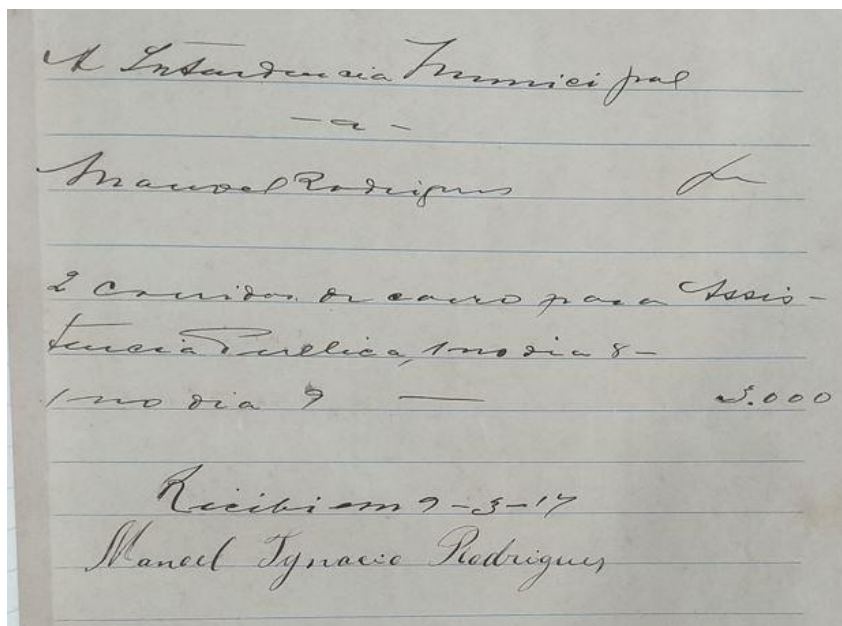 A Intendencia Municipal
- a -
Manoel Rodrigues
2 corridas de carro para Assis-
tencia Publica, 1 no dia 8 -
1 no dia 9 — 5.000
Recibi em 9-3-17
Manoel Ignacio Rodrigues